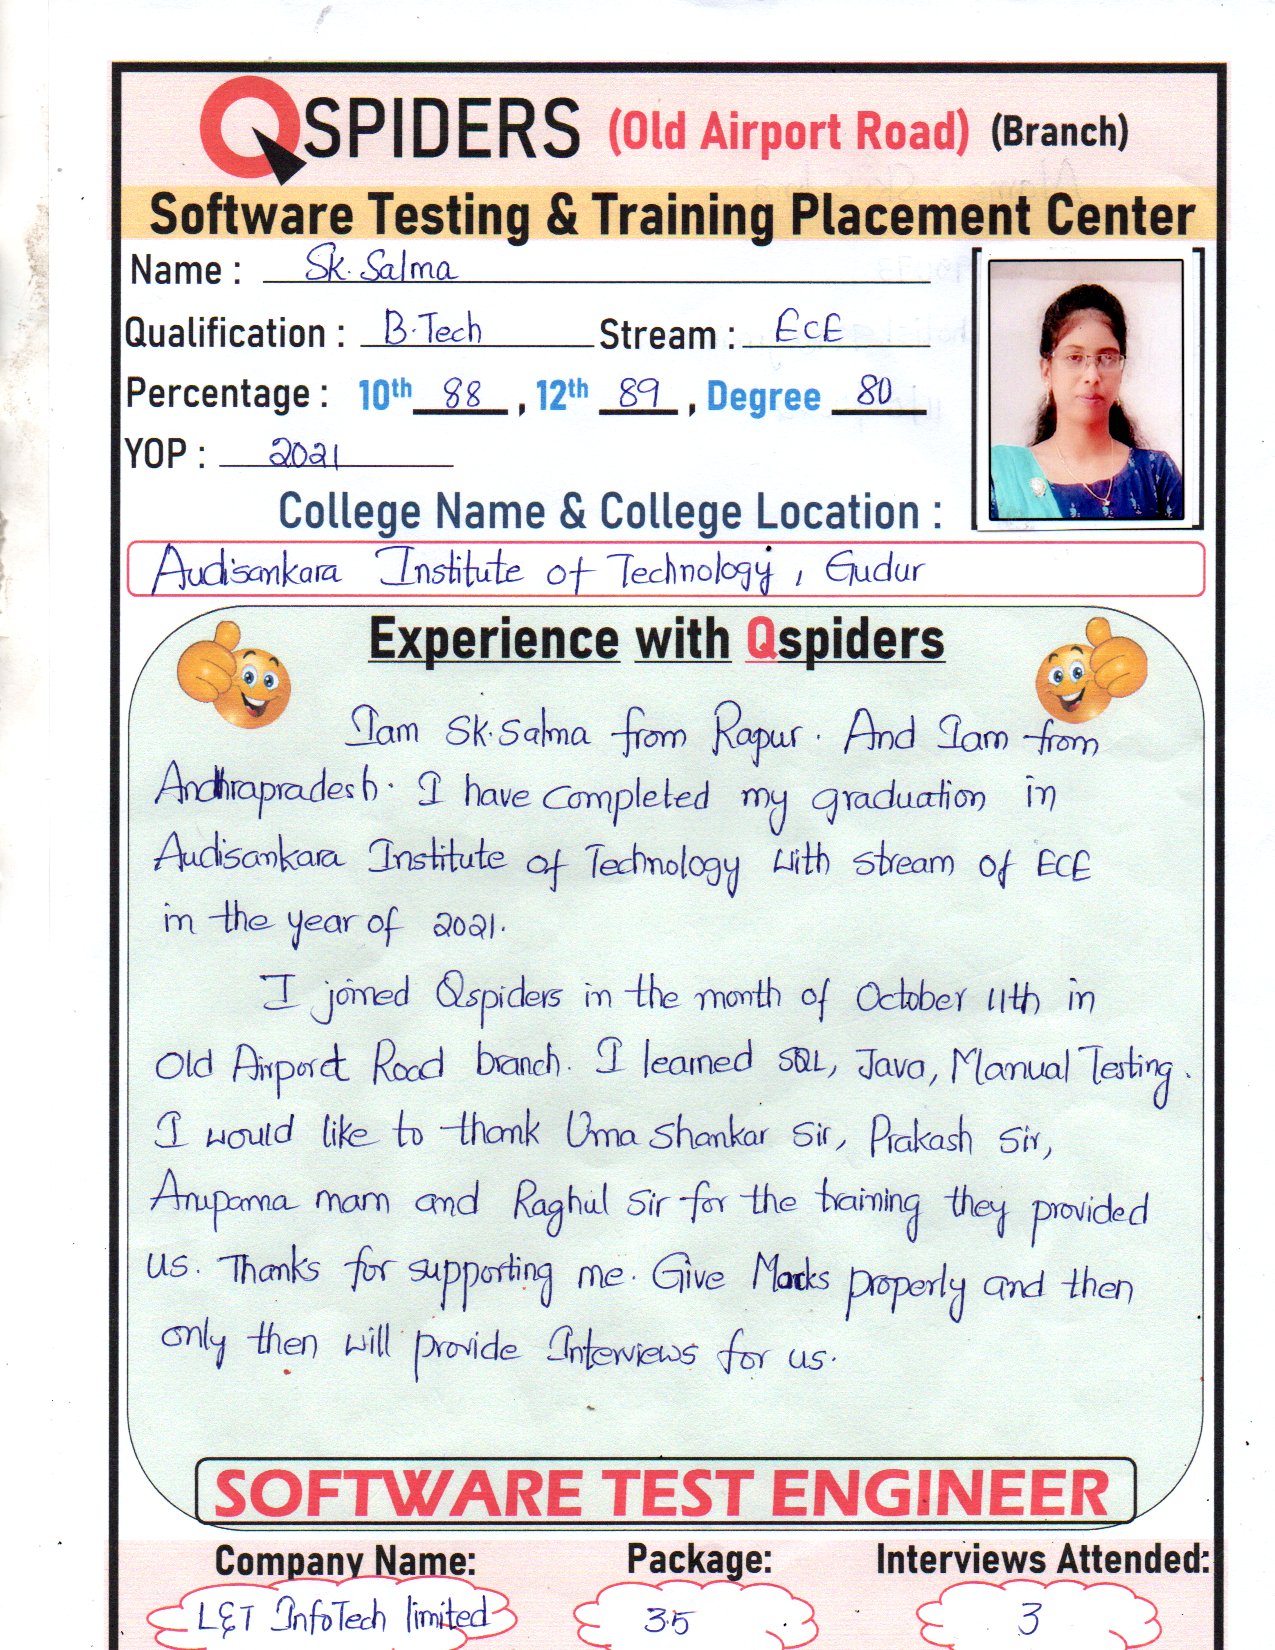 QSPIDERS (Old Airport Road) (Branch)
Software Testing & Training Placement Center
Name : Sk. Salma
Qualification : B.Tech Stream : ECE
Percentage : 10th 88 , 12th 89 , Degree 80
YOP : 2021
College Name & College Location :
Audisankara Institute of Technology , Gudur
Experience with Qspiders
Iam Sk. Salma from Rapur. And Iam from
Andhrapradesh. I have completed my graduation in
Audisankara Institute of Technology with stream of ECE
in the year of 2021.
I joined Qspiders in the month of October 11th in
Old Airport Road branch. I learned SQL, Java, Manual Testing.
I would like to thank Uma Shankar Sir, Prakash Sir,
Anupama mam and Raghul Sir for the training they provided
us. Thanks for supporting me. Give Mocks properly and then
only then will provide Interviews for us.
SOFTWARE TEST ENGINEER
Company Name: Package: Interviews Attended:
L&T InfoTech limited 3.5 3